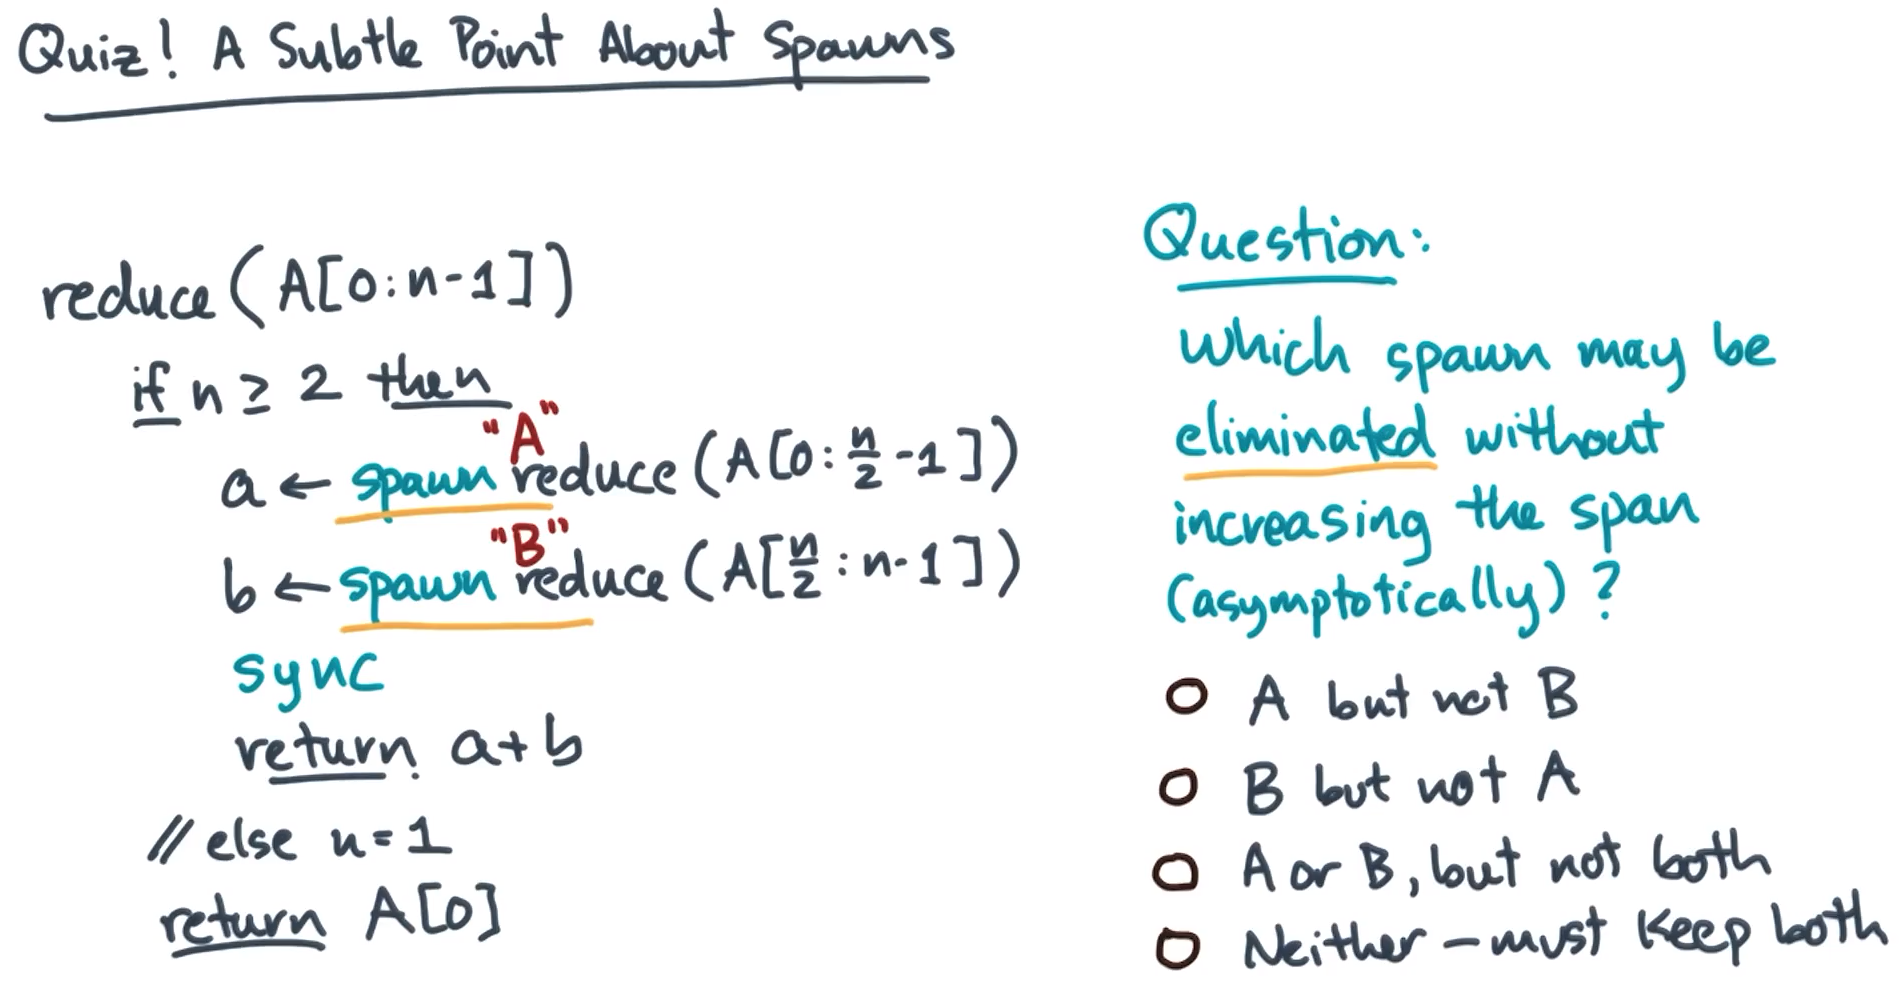 Quiz! A Subtle Point About Spawns
reduce (A[0:n-1])
if n ≥ 2 then
"A"
a ← spawn reduce (A[0:n/2-1])
"B"
b ← spawn reduce (A[n/2:n-1])
sync
return a+b
// else n=1
return A[0]
Question:
Which spawn may be
eliminated without
increasing the span
(asymptotically)?
O A but not B
O B but not A
O A or B, but not both
O Neither - must keep both